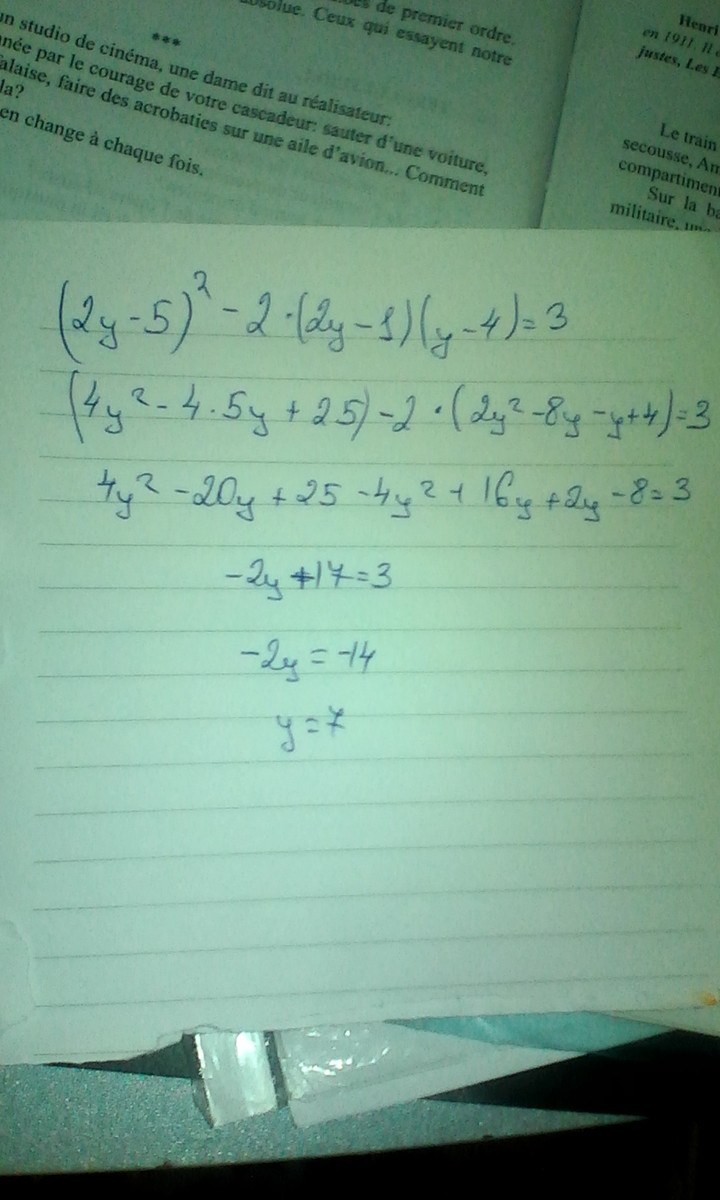 de premier ordre.
absolue. Ceux qui essayent notre
***
un studio de cinéma, une dame dit au réalisateur:
née par le courage de votre cascadeur: sauter d'une voiture,
alaise, faire des acrobaties sur une aile d'avion... Comment
la?
en change à chaque fois.
Henri
en 1911. Il
justes, Les
Le train
secousse, An
compartimen
Sur la ba
militaire, une
(2y-5)² - 2·(2y-1)(y-4)=3
(4y² - 4·5y + 25) - 2·(2y² - 8y - y + 4) = 3
4y² - 20y + 25 - 4y² + 16y + 2y - 8 = 3
-2y + 17 = 3
-2y = -14
y = 7